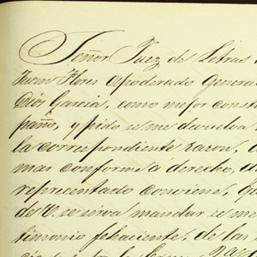 Señor Juez de Letras
Juan Flores Apoderado Genera
Dios Garcia, como mejor const
paño, y pido se me devuelva
la correspondiente razon,
mas conforme a derecho,
representado conviene,
do V. se sirva mandar se me
timonio fehaciente, de las